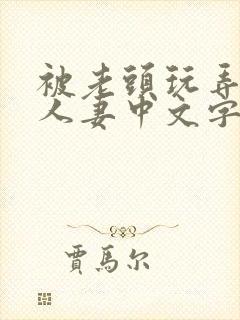 被老頭玩弄
人妻中文字
賈馬尔